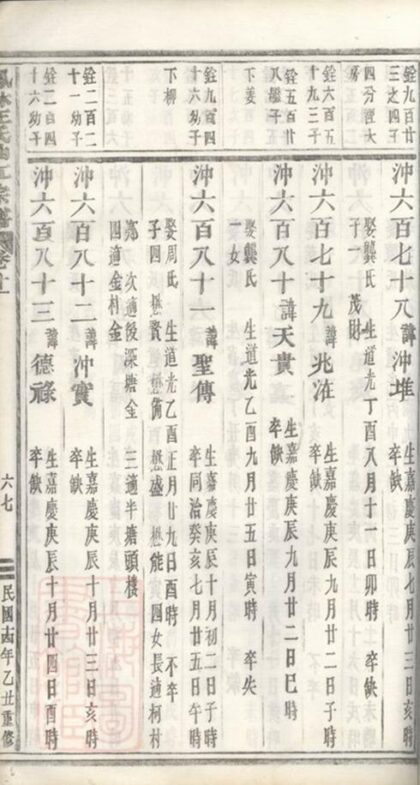 銓九百四十
三之四子
沖六百七十八 諱沖堆
生嘉慶庚辰八月廿三日亥時
卒缺
四分澄大
房
娶龔氏 生道光丁酉八月十一日卯時 卒缺
子一 茂財
銓六百五
十九三子
沖六百七十九 諱兆淮
生嘉慶庚辰九月廿二日子時
卒缺
銓五百廿
八繼子
沖六百八十 諱天貴
生嘉慶庚辰九月廿二日巳時
卒缺
下姜
娶龔氏 生道光乙酉九月廿五日寅時 卒失
一女
銓九百四
十六幼子
沖六百八十一 諱聖傳
生嘉慶庚辰十月初二日子時
卒同治癸亥七月廿五日午時
下柳
娶周氏 生道光乙酉正月廿九日酉時 不卒
子四 懋賓 懋備 懋盛 懋能 女四 長適柯村
鄭 次適後深塘金 三適半塘頭樓
四適金村金
銓二百二
十一幼子
沖六百八十二 諱沖實
生嘉慶庚辰十月廿三日亥時
卒缺
銓二百四
十六幼子
沖六百八十三 諱德祿
生嘉慶庚辰十月廿四日酉時
卒缺
六七
民國十四年乙丑重修